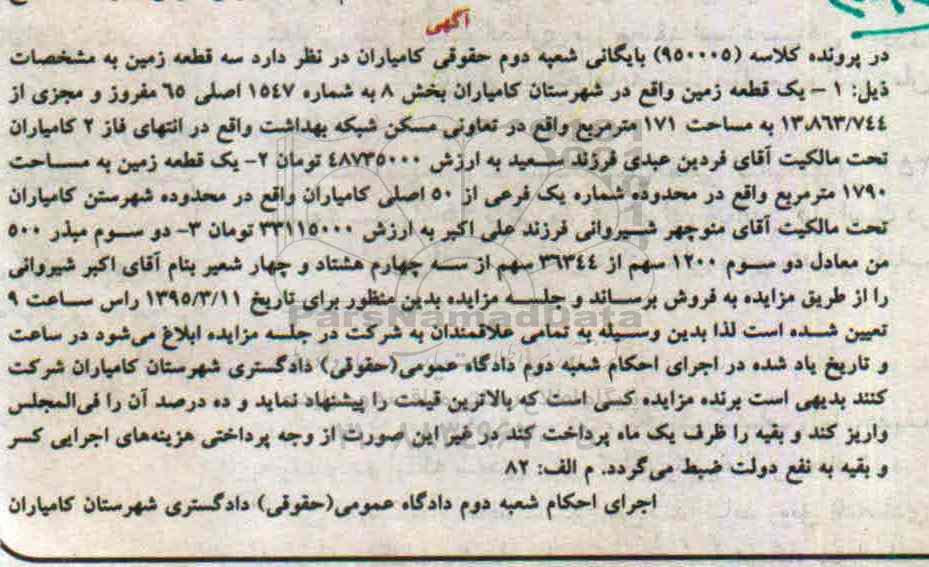 آگهی
در پرونده کلاسه (۹۵۰۰۰۵) بایگانی شعبه دوم حقوقی کامیاران در نظر دارد سه قطعه زمین به مشخصات
ذیل: ۱ – یک قطعه زمین واقع در شهرستان کامیاران بخش ۸ به شماره ۱۵٤۷ اصلی ٦۵ مفروز و مجزی از
۱۳،۸٦۳/۷٤٤ به مساحت ۱۷۱ مترمربع واقع در تعاونی مسکن شبکه بهداشت واقع در انتهای فاز ۲ کامیاران
تحت مالکیت آقای فردین عبدی فرزند سعید به ارزش ٤۸۷۳۵۰۰۰ تومان ۲- یک قطعه زمین به مساحت
۱۷۹۰ مترمربع واقع در محدوده شماره یک فرعی از ۵۰ اصلی کامیاران واقع در محدوده شهرستن کامیاران
تحت مالکیت آقای منوچهر شیروانی فرزند علی اکبر به ارزش ۳۳۱۱۵۰۰۰ تومان ۳- دو سوم مبذر ۵۰۰
من معادل دو سوم ۱۲۰۰ سهم از ۳٦۳٤٤ سهم از سه چهارم هشتاد و چهار شعیر بنام آقای اکبر شیروانی
را از طریق مزایده به فروش برساند و جلسه مزایده بدین منظور برای تاریخ ۱۳۹۵/۳/۱۱ راس ساعت ۹
تعیین شده است لذا بدین وسیله به تمامی علاقمندان به شرکت در جلسه مزایده ابلاغ می‌شود در ساعت
و تاریخ یاد شده در اجرای احکام شعبه دوم دادگاه عمومی(حقوقی) دادگستری شهرستان کامیاران شرکت
کنند بدیهی است برنده مزایده کسی است که بالاترین قیمت را پیشنهاد نماید و ده درصد آن را فی‌المجلس
واریز کند و بقیه را ظرف یک ماه پرداخت کند در غیر این صورت از وجه پرداختی هزینه‌های اجرایی کسر
و بقیه به نفع دولت ضبط می‌گردد. م الف: ۸۲
اجرای احکام شعبه دوم دادگاه عمومی(حقوقی) دادگستری شهرستان کامیاران
ParsNamadData